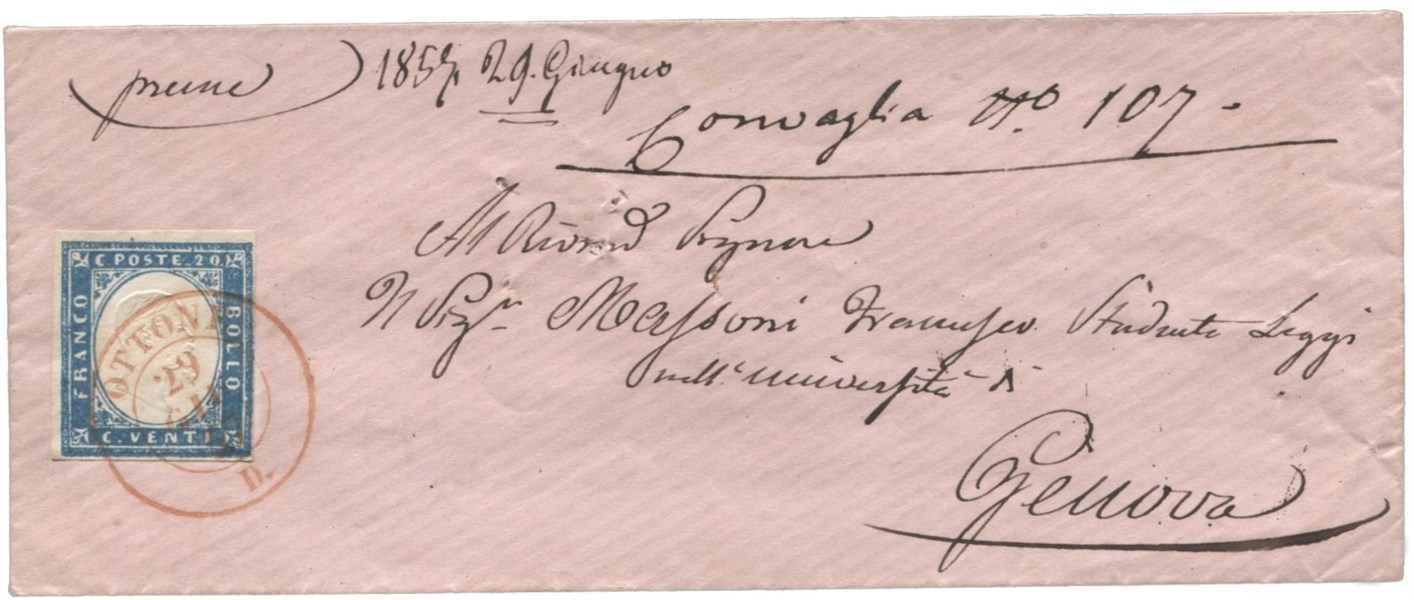 1857 29. Giugno
Convaglia No. 107.
Al Riverd Signore
Il Sigr. Massoni Francesco Studente Leggi
nell'università di
Genova
C POSTE 20.
FRANCO
BOLLO
C. VENTI
OTTONE
29
D.